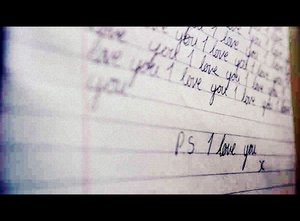 love you I love you
you I love you I love you
love you I love you I love you I love
love you I love you I love you I love
you
P.S I love you
x